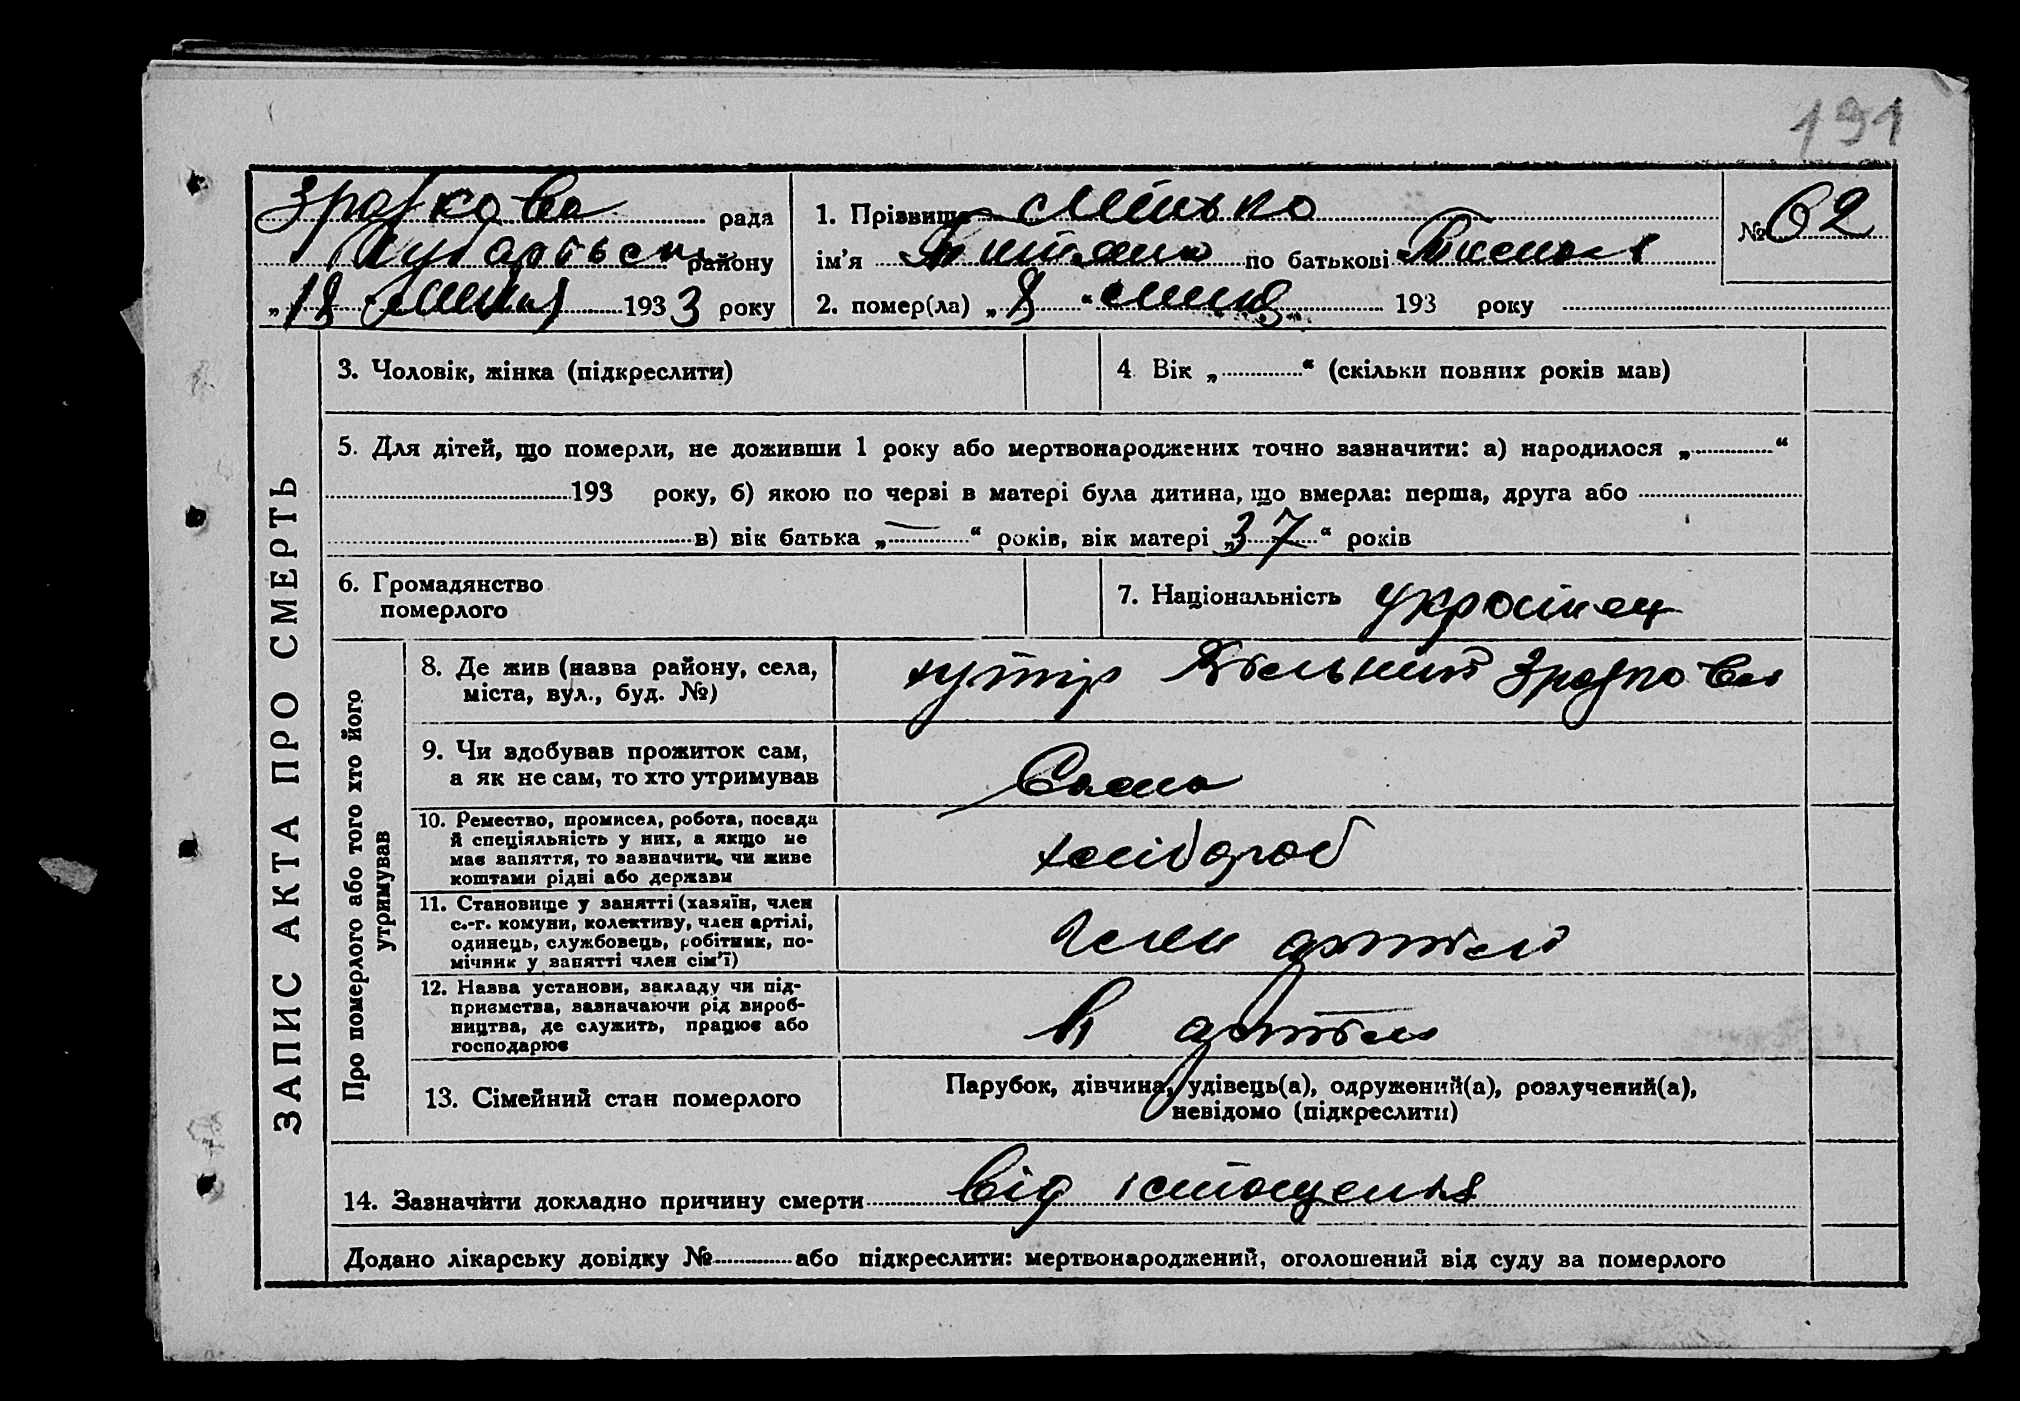 191
рада
району
„18 липня 1933 року
1. Прізвище Мінько
ім’я по батькові
№ 62
2. помер(ла) „8“ липня 193 року
ЗАПИС АКТА ПРО СМЕРТЬ
3. Чоловік, жінка (підкреслити)
4. Вік „ “ (скільки повних років мав)
5. Для дітей, що померли, не доживши 1 року або мертвонароджених точно зазначити: а) народилося „ “
193 року, б) якою по черзі в матері була дитина, що вмерла: перша, друга або
в) вік батька „—“ років, вік матері „37“ років
6. Громадянство
померлого
7. Національність украинец
Про померлого або того хто його
утримував
8. Де жив (назва району, села,
міста, вул., буд. №)
хутір
9. Чи вдобував прожиток сам,
а як не сам, то хто утримував
Сама
10. Ремество, промисел, робота, посада
й спеціяльність у них, а якщо не
має заняття, то зазначити, чи живе
коштами рідні або держави
хлібороб
11. Становище у занятті (хазяїн, член
с.-г. комуни, колективу, член артілі,
одинець, службовець, робітник, по-
мічник у занятті член сім’ї)
член артілі
12. Назва установи, закладу чи під-
приємства, зазначаючи рід вироб-
ництва, де служить, працює або
господарює
в артілі
13. Сімейний стан померлого
Парубок, дівчина, удівець(а), одружений(а), розлучений(а),
невідомо (підкреслити)
14. Зазначити докладно причину смерти від істощення
Додано лікарську довідку № або підкреслити: мертвонароджений, оголошений від суду за померлого